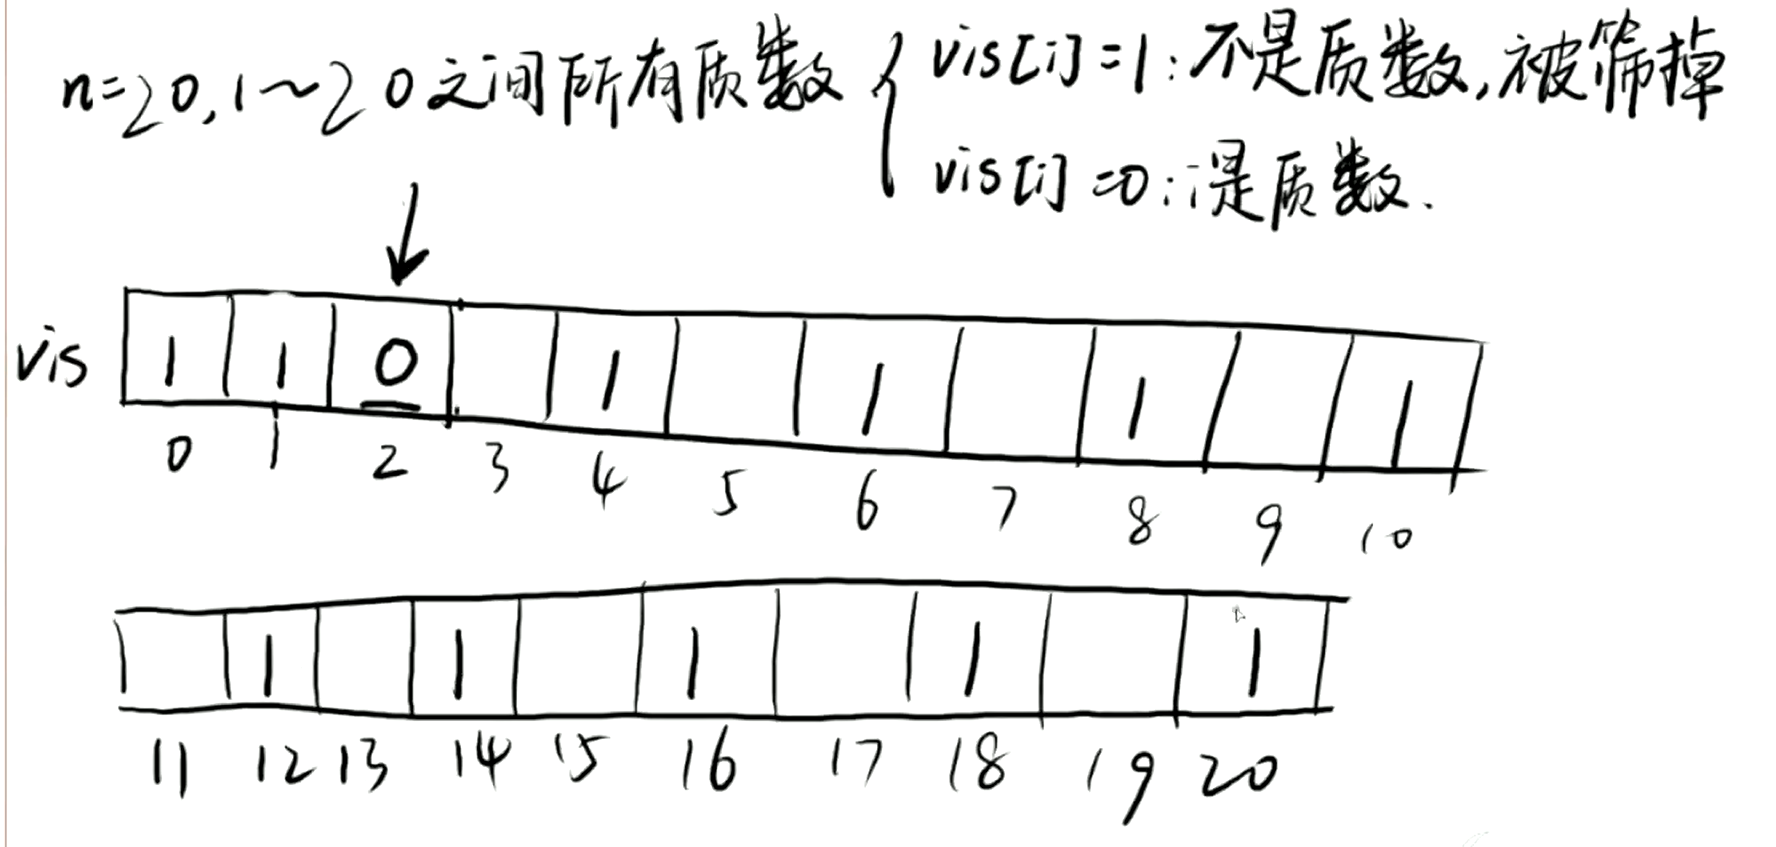 n=20,1~20之间所有质数 { vis[i]=1:不是质数,被筛掉
vis[i]=0:i是质数.
vis 1 1 0 1 1 1 1
0 1 2 3 4 5 6 7 8 9 10
1 1 1 1 1
11 12 13 14 15 16 17 18 19 20